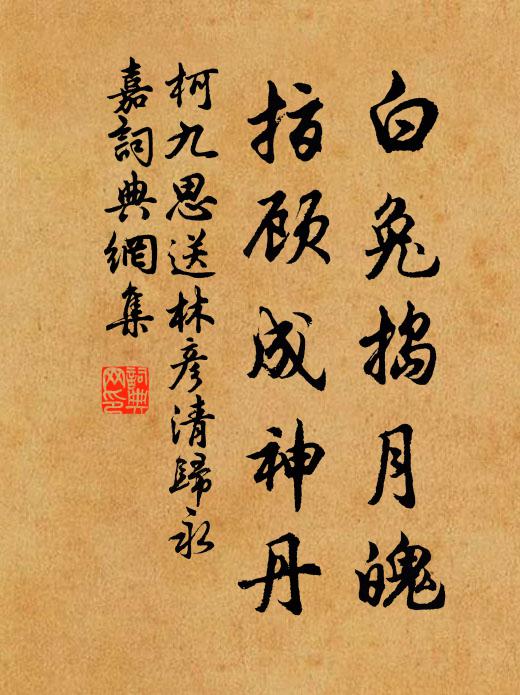 白兔搗月魄
指顾成神丹
柯九思送林彦清歸永
嘉詞典網集
詞典
网印